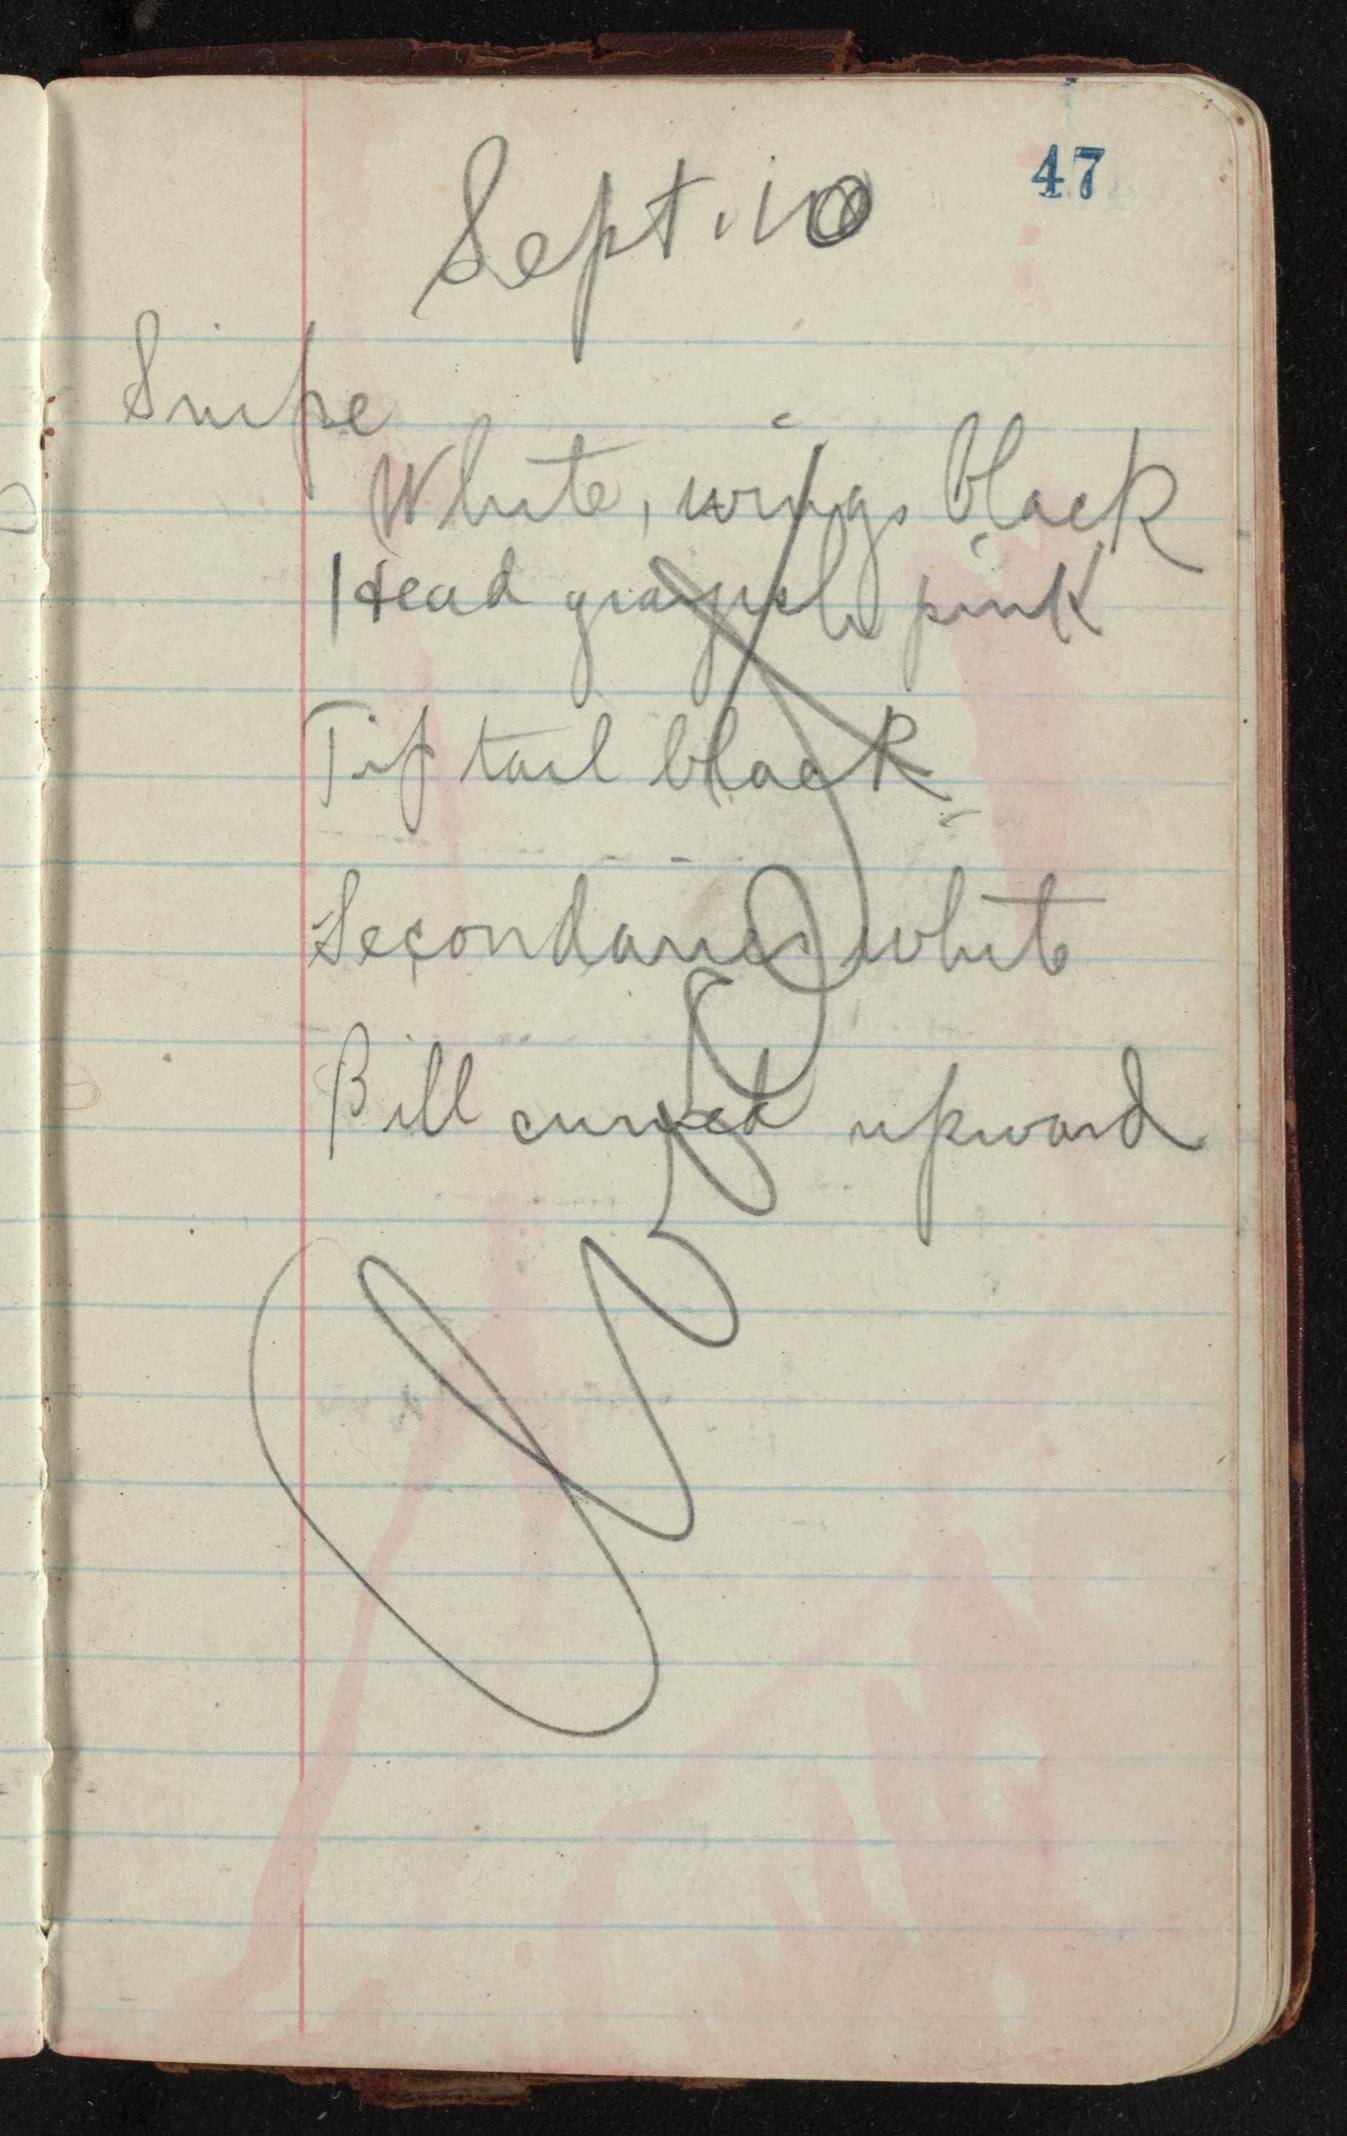 47
Sept. 10
Snipe
White, wings black
Head grayish pink
Tip tail black
Secondaries white
Bill curved upward